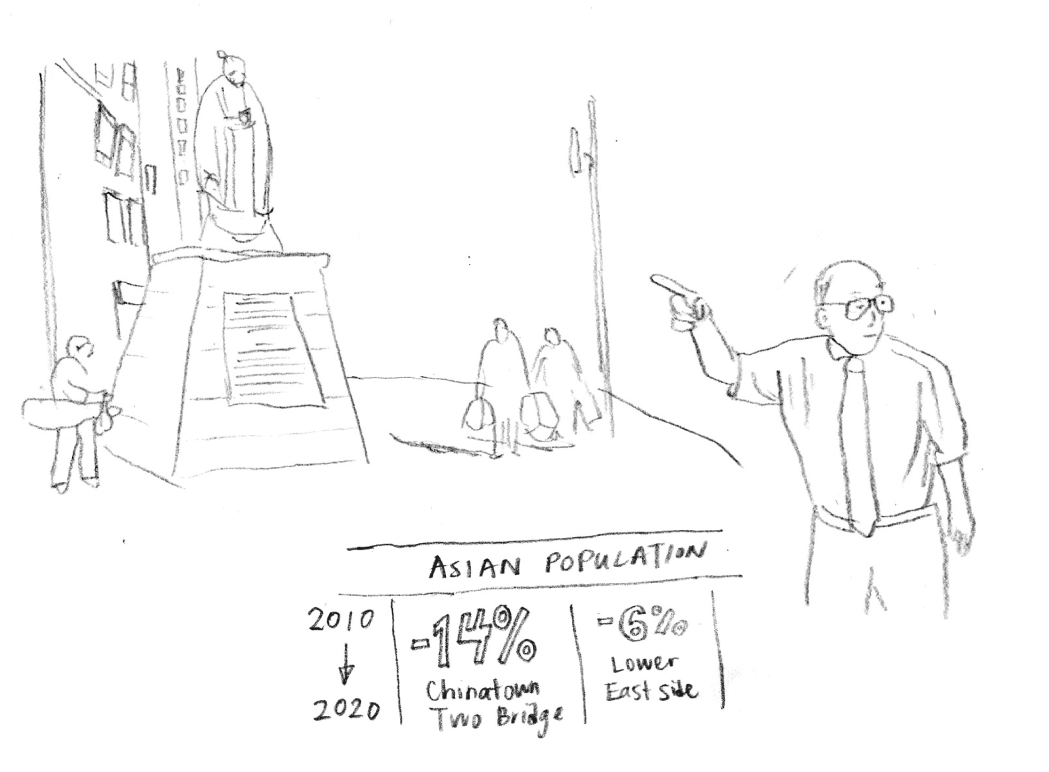 ASIAN POPULATION
2010
↓
2020
-14%
Chinatown
Two Bridge
-6%
Lower
East side